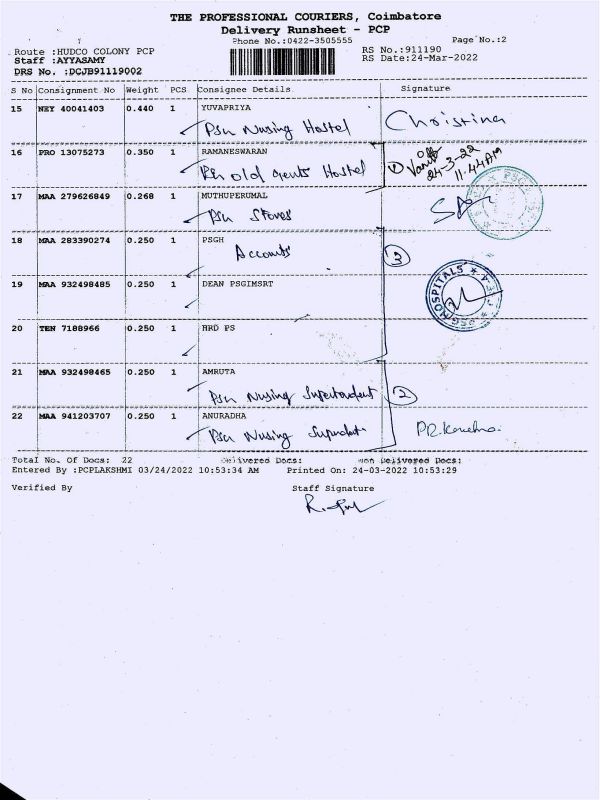 THE PROFESSIONAL COURIERS, Coimbatore
Delivery Runsheet - PCP
Phone No.:0422-3505555 Page No.:2
Route :HUDCO COLONY PCP RS No.:911190
Staff :AYYASAMY RS Date:24-Mar-2022
DRS No. :DCJB91119002
S No Consignment No Weight PCS Consignee Details Signature
15 NEY 40041403 0.440 1 YUVAPRIYA
Nursing Hostel Christina
16 PRO 13075273 0.350 1 RAMANESWARAN
old gents Hostel 1 24-3-22 11.44AM
17 MAA 279626849 0.268 1 MUTHUPERUMAL
Stores
18 MAA 283390274 0.250 1 PSGH
Accounts 3
19 MAA 932498485 0.250 1 DEAN PSGIMSRT
PSG HOSPITALS
20 TEN 7188966 0.250 1 HRD PS
21 MAA 932498465 0.250 1 AMRUTA
Nursing 2
22 MAA 941203707 0.250 1 ANURADHA
Nursing
Total No. Of Docs: 22 Delivered Docs: Non Delivered Docs:
Entered By :PCPLAKSHMI 03/24/2022 10:53:34 AM Printed On: 24-03-2022 10:53:29
Verified By Staff Signature